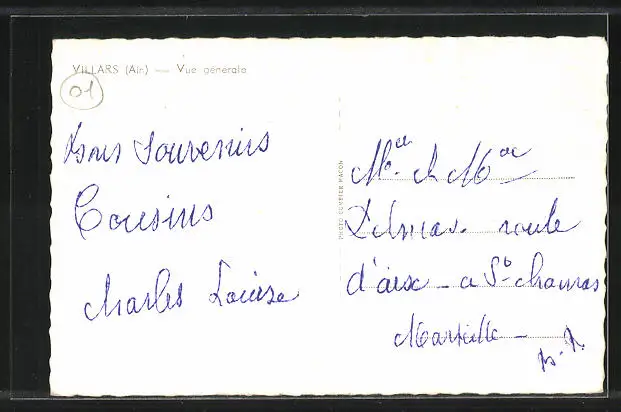 VILLARS (Ain) — Vue générale
01
Bons Souvenirs
Cousins
Charles Louise
PHOTO COMBIER MACON
Mr et Mme
Delmas. route
d'aix - a St chamas
Marseille -
B. R.